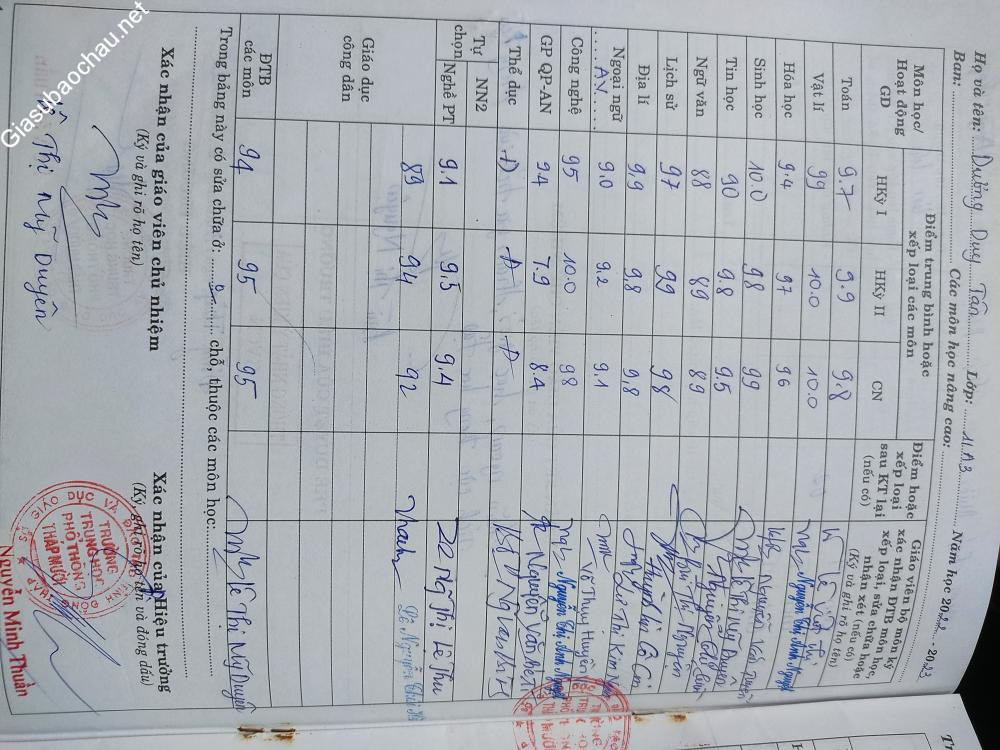 Họ và tên: Dương Duy Tấn Lớp: 11.A3 Năm học 2022 - 2023
Ban: Các môn học nâng cao:
Môn học/ Hoạt động GD
Điểm trung bình hoặc xếp loại các môn
HKỳ I HKỳ II CN
Điểm hoặc xếp loại sau KT lại (nếu có)
Giáo viên bộ môn ký xác nhận ĐTB môn học, xếp loại, sửa chữa hoặc nhận xét (nếu có)
(Ký và ghi rõ họ tên)
Toán 9.7 9.9 9.8
Vật lí 99 10.0 10.0 Nguyễn Thị Ánh Nguyệt
Hóa học 9.4 97 96 Nguyễn Văn
Sinh học 10.0 98 99 Lê Thị Mỹ Duyên
Tin học 90 9.8 9.5 Nguyễn
Ngữ văn 88 89 89 Nguyên
Lịch sử 97 99 98 Huỳnh
Địa lí 9.9 9.8 9.8 Thị Kim
Ngoại ngữ A.V 9.0 9.2 9.1 Võ Thụy Huyền
Công nghệ 95 10.0 98 Nguyễn Thị Ánh Nguyệt
GD QP-AN 9.4 7.9 8.4 Nguyễn Văn
Thể dục Đ Đ Đ
Tự chọn NN2
Nghề PT 9.1 9.5 9.4 Ng Thị Lê Thu
Giáo dục công dân 89 94 92 Lê Nguyễn
ĐTB các môn 94 95 95 Lê Thị Mỹ Duyên
Trong bảng này có sửa chữa ở: 0 chỗ, thuộc các môn học:
Xác nhận của giáo viên chủ nhiệm
(Ký và ghi rõ họ tên)
Lê Thị Mỹ Duyên
Xác nhận của Hiệu trưởng
(Ký, ghi rõ họ tên và đóng dấu)
TRƯỜNG
TRUNG HỌC
PHỔ THÔNG
THÁP MƯỜI
Nguyễn Minh Thuấn
Giasubaochau.net